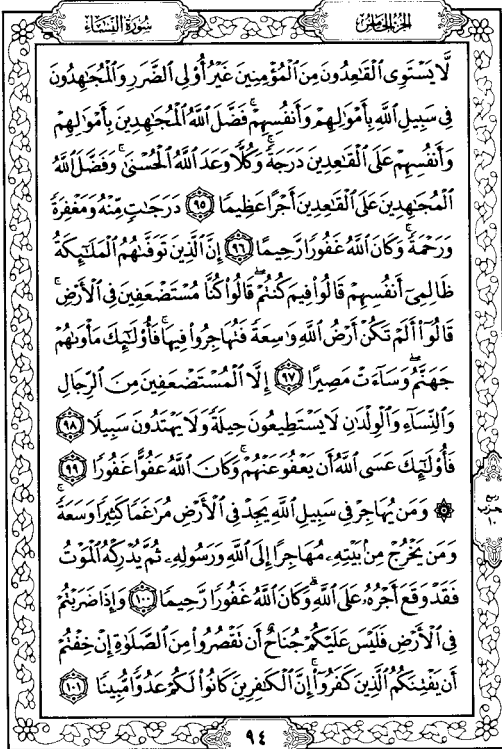 سُورَةُ النِّسَاءِ الجُزْءُ الخَامِسُ
لَّا يَسْتَوِى الْقَاعِدُونَ مِنَ الْمُؤْمِنِينَ غَيْرُ أُو۟لِى الضَّرَرِ وَالْمُجَاهِدُونَ
فِى سَبِيلِ اللَّهِ بِأَمْوَالِهِمْ وَأَنفُسِهِمْ ۚ فَضَّلَ اللَّهُ الْمُجَاهِدِينَ بِأَمْوَالِهِمْ
وَأَنفُسِهِمْ عَلَى الْقَاعِدِينَ دَرَجَةً ۚ وَكُلًّا وَعَدَ اللَّهُ الْحُسْنَىٰ ۚ وَفَضَّلَ اللَّهُ
الْمُجَاهِدِينَ عَلَى الْقَاعِدِينَ أَجْرًا عَظِيمًا ٩٥ دَرَجَاتٍ مِّنْهُ وَمَغْفِرَةً
وَرَحْمَةً ۚ وَكَانَ اللَّهُ غَفُورًا رَّحِيمًا ٩٦ إِنَّ الَّذِينَ تَوَفَّاهُمُ الْمَلَائِكَةُ
ظَالِمِىٓ أَنفُسِهِمْ قَالُوا۟ فِيمَ كُنتُمْ ۖ قَالُوا۟ كُنَّا مُسْتَضْعَفِينَ فِى الْأَرْضِ ۚ
قَالُوٓا۟ أَلَمْ تَكُنْ أَرْضُ اللَّهِ وَاسِعَةً فَتُهَاجِرُوا۟ فِيهَا ۚ فَأُو۟لَٰٓئِكَ مَأْوَاهُمْ
جَهَنَّمُ ۖ وَسَآءَتْ مَصِيرًا ٩٧ إِلَّا الْمُسْتَضْعَفِينَ مِنَ الرِّجَالِ
وَالنِّسَآءِ وَالْوِلْدَانِ لَا يَسْتَطِيعُونَ حِيلَةً وَلَا يَهْتَدُونَ سَبِيلًا ٩٨
فَأُو۟لَٰٓئِكَ عَسَى اللَّهُ أَن يَعْفُوَ عَنْهُمْ ۚ وَكَانَ اللَّهُ عَفُوًّا غَفُورًا ٩٩
۞ وَمَن يُهَاجِرْ فِى سَبِيلِ اللَّهِ يَجِدْ فِى الْأَرْضِ مُرَاغَمًا كَثِيرًا وَسَعَةً ۚ
وَمَن يَخْرُجْ مِنۢ بَيْتِهِۦ مُهَاجِرًا إِلَى اللَّهِ وَرَسُولِهِۦ ثُمَّ يُدْرِكْهُ الْمَوْتُ
فَقَدْ وَقَعَ أَجْرُهُۥ عَلَى اللَّهِ ۗ وَكَانَ اللَّهُ غَفُورًا رَّحِيمًا ١٠٠ وَإِذَا ضَرَبْتُمْ
فِى الْأَرْضِ فَلَيْسَ عَلَيْكُمْ جُنَاحٌ أَن تَقْصُرُوا۟ مِنَ الصَّلَوٰةِ إِنْ خِفْتُمْ
أَن يَفْتِنَكُمُ الَّذِينَ كَفَرُوٓا۟ ۚ إِنَّ الْكَافِرِينَ كَانُوا۟ لَكُمْ عَدُوًّا مُّبِينًا ١٠١
٩٤